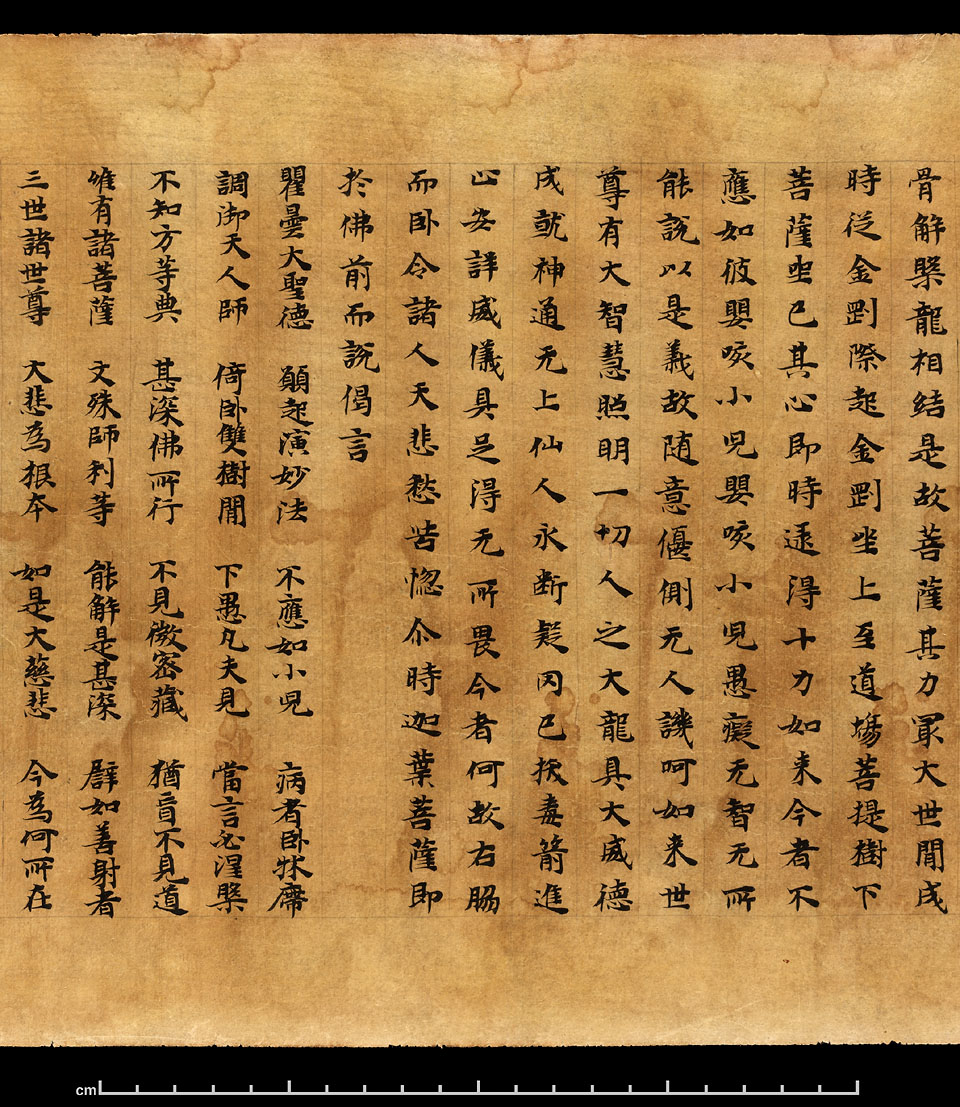 骨解槃龍相結是故菩薩其力冣大世間成
時從金剛際起金剛坐上至道場菩提樹下
菩薩坐已其心即時逮得十力如来今者不
應如彼嬰咳小兒嬰咳小兒愚癡无智无所
能說以是義故随意偃側无人譏呵如来世
尊有大智慧照明一切人之大龍具大威德
成就神通无上仙人永断疑冈已拔毒箭進
止安詳威儀具足得无所畏今者何故右脇
而卧令諸人天悲愁苦惱尒時迦葉菩薩即
於佛前而說偈言
瞿曇大聖德 願起演妙法 不應如小兒 病者卧牀席
調御天人師 倚卧雙樹間 下愚凡夫見 當言必涅槃
不知方等典 甚深佛所行 不見微密藏 猶盲不見道
唯有諸菩薩 文殊師利等 能解是甚深 譬如善射者
三世諸世尊 大悲為根本 如是大慈悲 今為何所在
cm